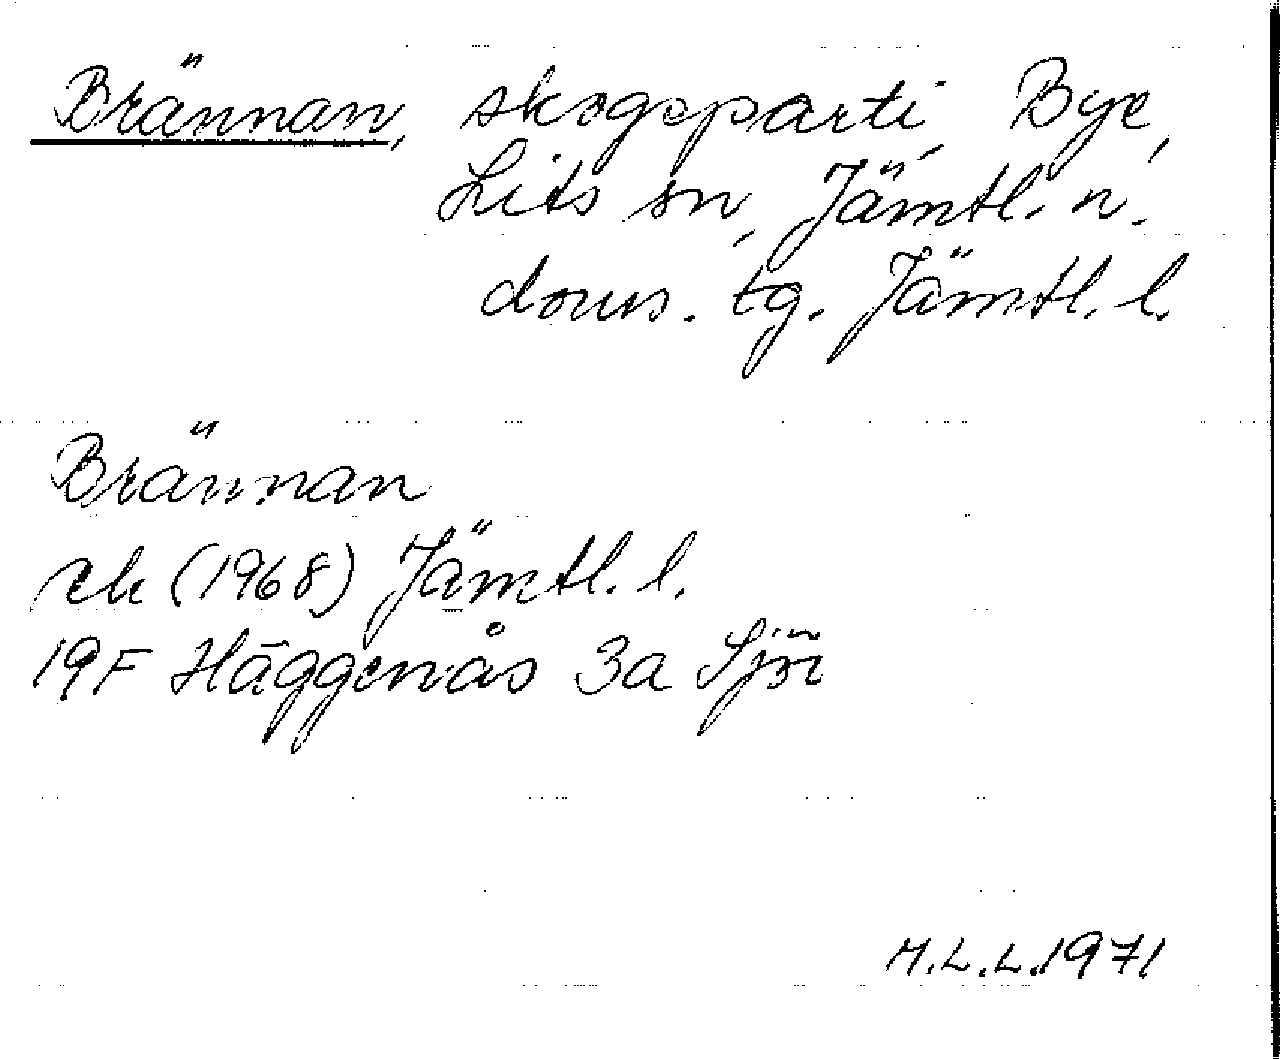 Brännan, skogsparti, Bye,
Lits sn, Jämtl. n.
doms. tg. Jämtl. l.
Brännan
rek (1968) Jämtl. l.
19F Häggenås 3a Sjö
M.L.L. 1971